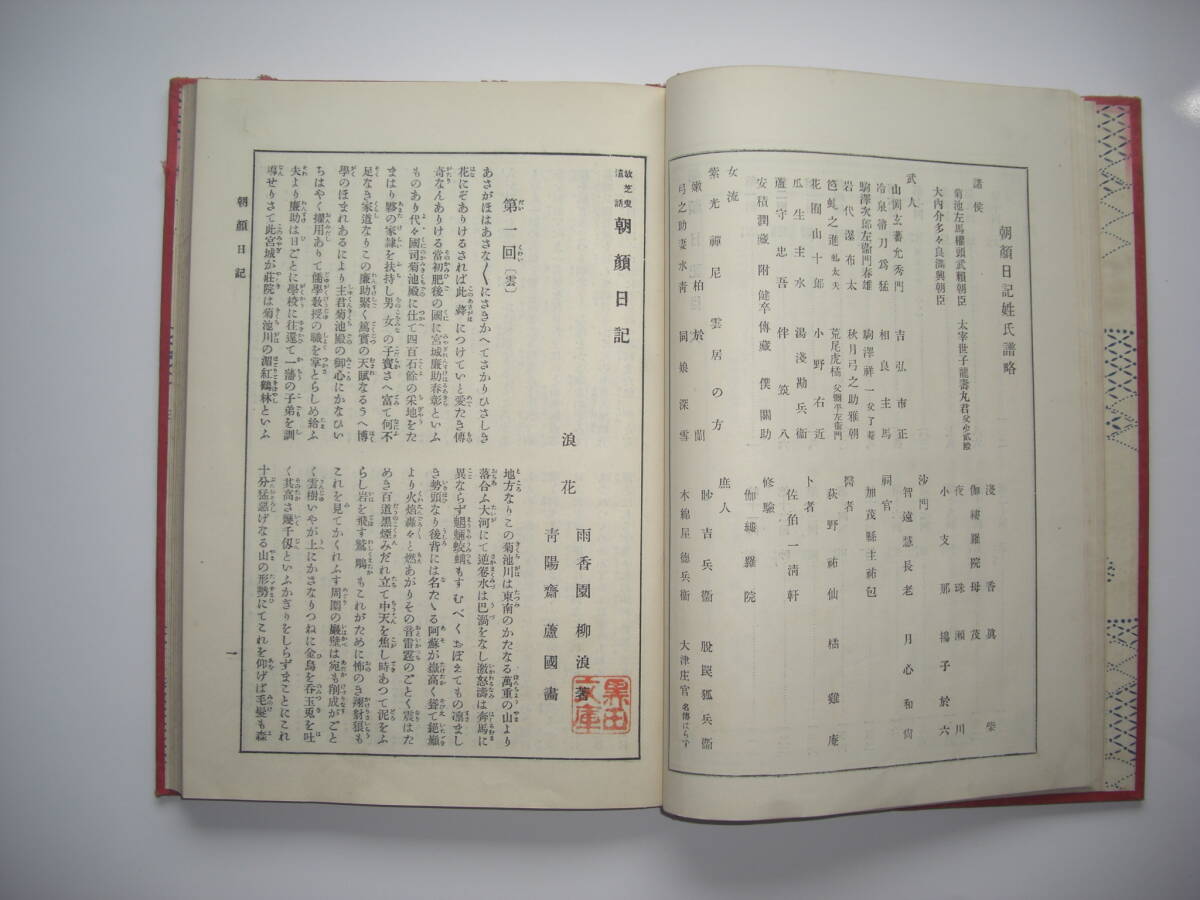 朝顔日記姓氏譜略
諸侯
菊池左馬權頭武頼朝臣 太宰世子龍壽丸君
大内介多々良滿興朝臣
武人
山岡玄蕃允秀門 吉弘市正
冷泉帶刀爲猛 相良主馬
駒澤次郎左衞門春雄 駒澤祥一
岩代瀑布太 秋月弓之助雅朝
荒尾虎橘
花園山十郎 小野右近
瓜生主水 湯淺勘兵衞
蘆守忠吾 伴筑八
安積潤藏 附健卒傳藏 僕關助
女流
紫光禪尼 雲居の方
嫩柏 於蘭
弓之助妻水靑 同娘深雪
淺香 眞柴
伽縷羅院母茂
夜珠 瀬川
小支那 楊子於六
沙門
智遠慧長老 月心和尙
祠官
加茂縣主祐包
醫者
荻野祐仙 橘雞庵
卜者
佐伯一淸軒
修驗
伽縷羅院
庶人
眇吉兵衞 脫民狐兵衞
木綿屋德兵衞 大津庄官
故芝叟遺話 朝顏日記
浪花 雨香園柳浪著
靑陽齋蘆國畵
黒田文庫
第一回〔雲〕
あさがほはあさな〱にさきかへてさかりひさしき
花にぞありけるされば此蕣につけていと愛たき傳
奇なんありける當初肥後の國に宮城廉助春彰といふ
ものあり代々國司菊池殿に仕て四百石餘の采地をた
まはり夥の家隷を扶持し男女の子寶さへ富て何不
足なき家道なりこの廉助緊く篤實の天賦なるうへ博
學のほまれあるにより主君菊池殿の御心にかなひい
ちはやく擢用ありて儒學敎授の職を掌とらしめ給ふ
夫より廉助は日ごとに學校に往還て一藩の子弟を訓
導せりさて此宮城が莊院は菊池川の湄紅鶴林といふ
地方なりこの菊池川は東南のかたなる萬重の山より
落合ふ大河にて逆卷水は巴渦をなし激怒濤は奔馬に
異ならず魍魎蛟螭もすむべくおぼえてもの凛まし
き勢頭なり後背には名だゝる阿蘇が嶽高く聳て絕巓
より火焰轟々と燃あがりその音雷霆のごとく震はた
めき百道黑煙みだれ立て中天を焦し時あつて泥をふ
らし岩を飛す鷲鵰もこれがために怖のき翔豺狼も
これを見てかくれふす周圍の巖壁は宛も削成がごと
く雲樹いやが上にかさなりつねに金烏を呑玉兎を吐
く其高さ幾千仭といふかぎりをしらずまことにこれ
十分猛惡げなる山の形勢にてこれを仰げば毛髮も森
朝顏日記
一